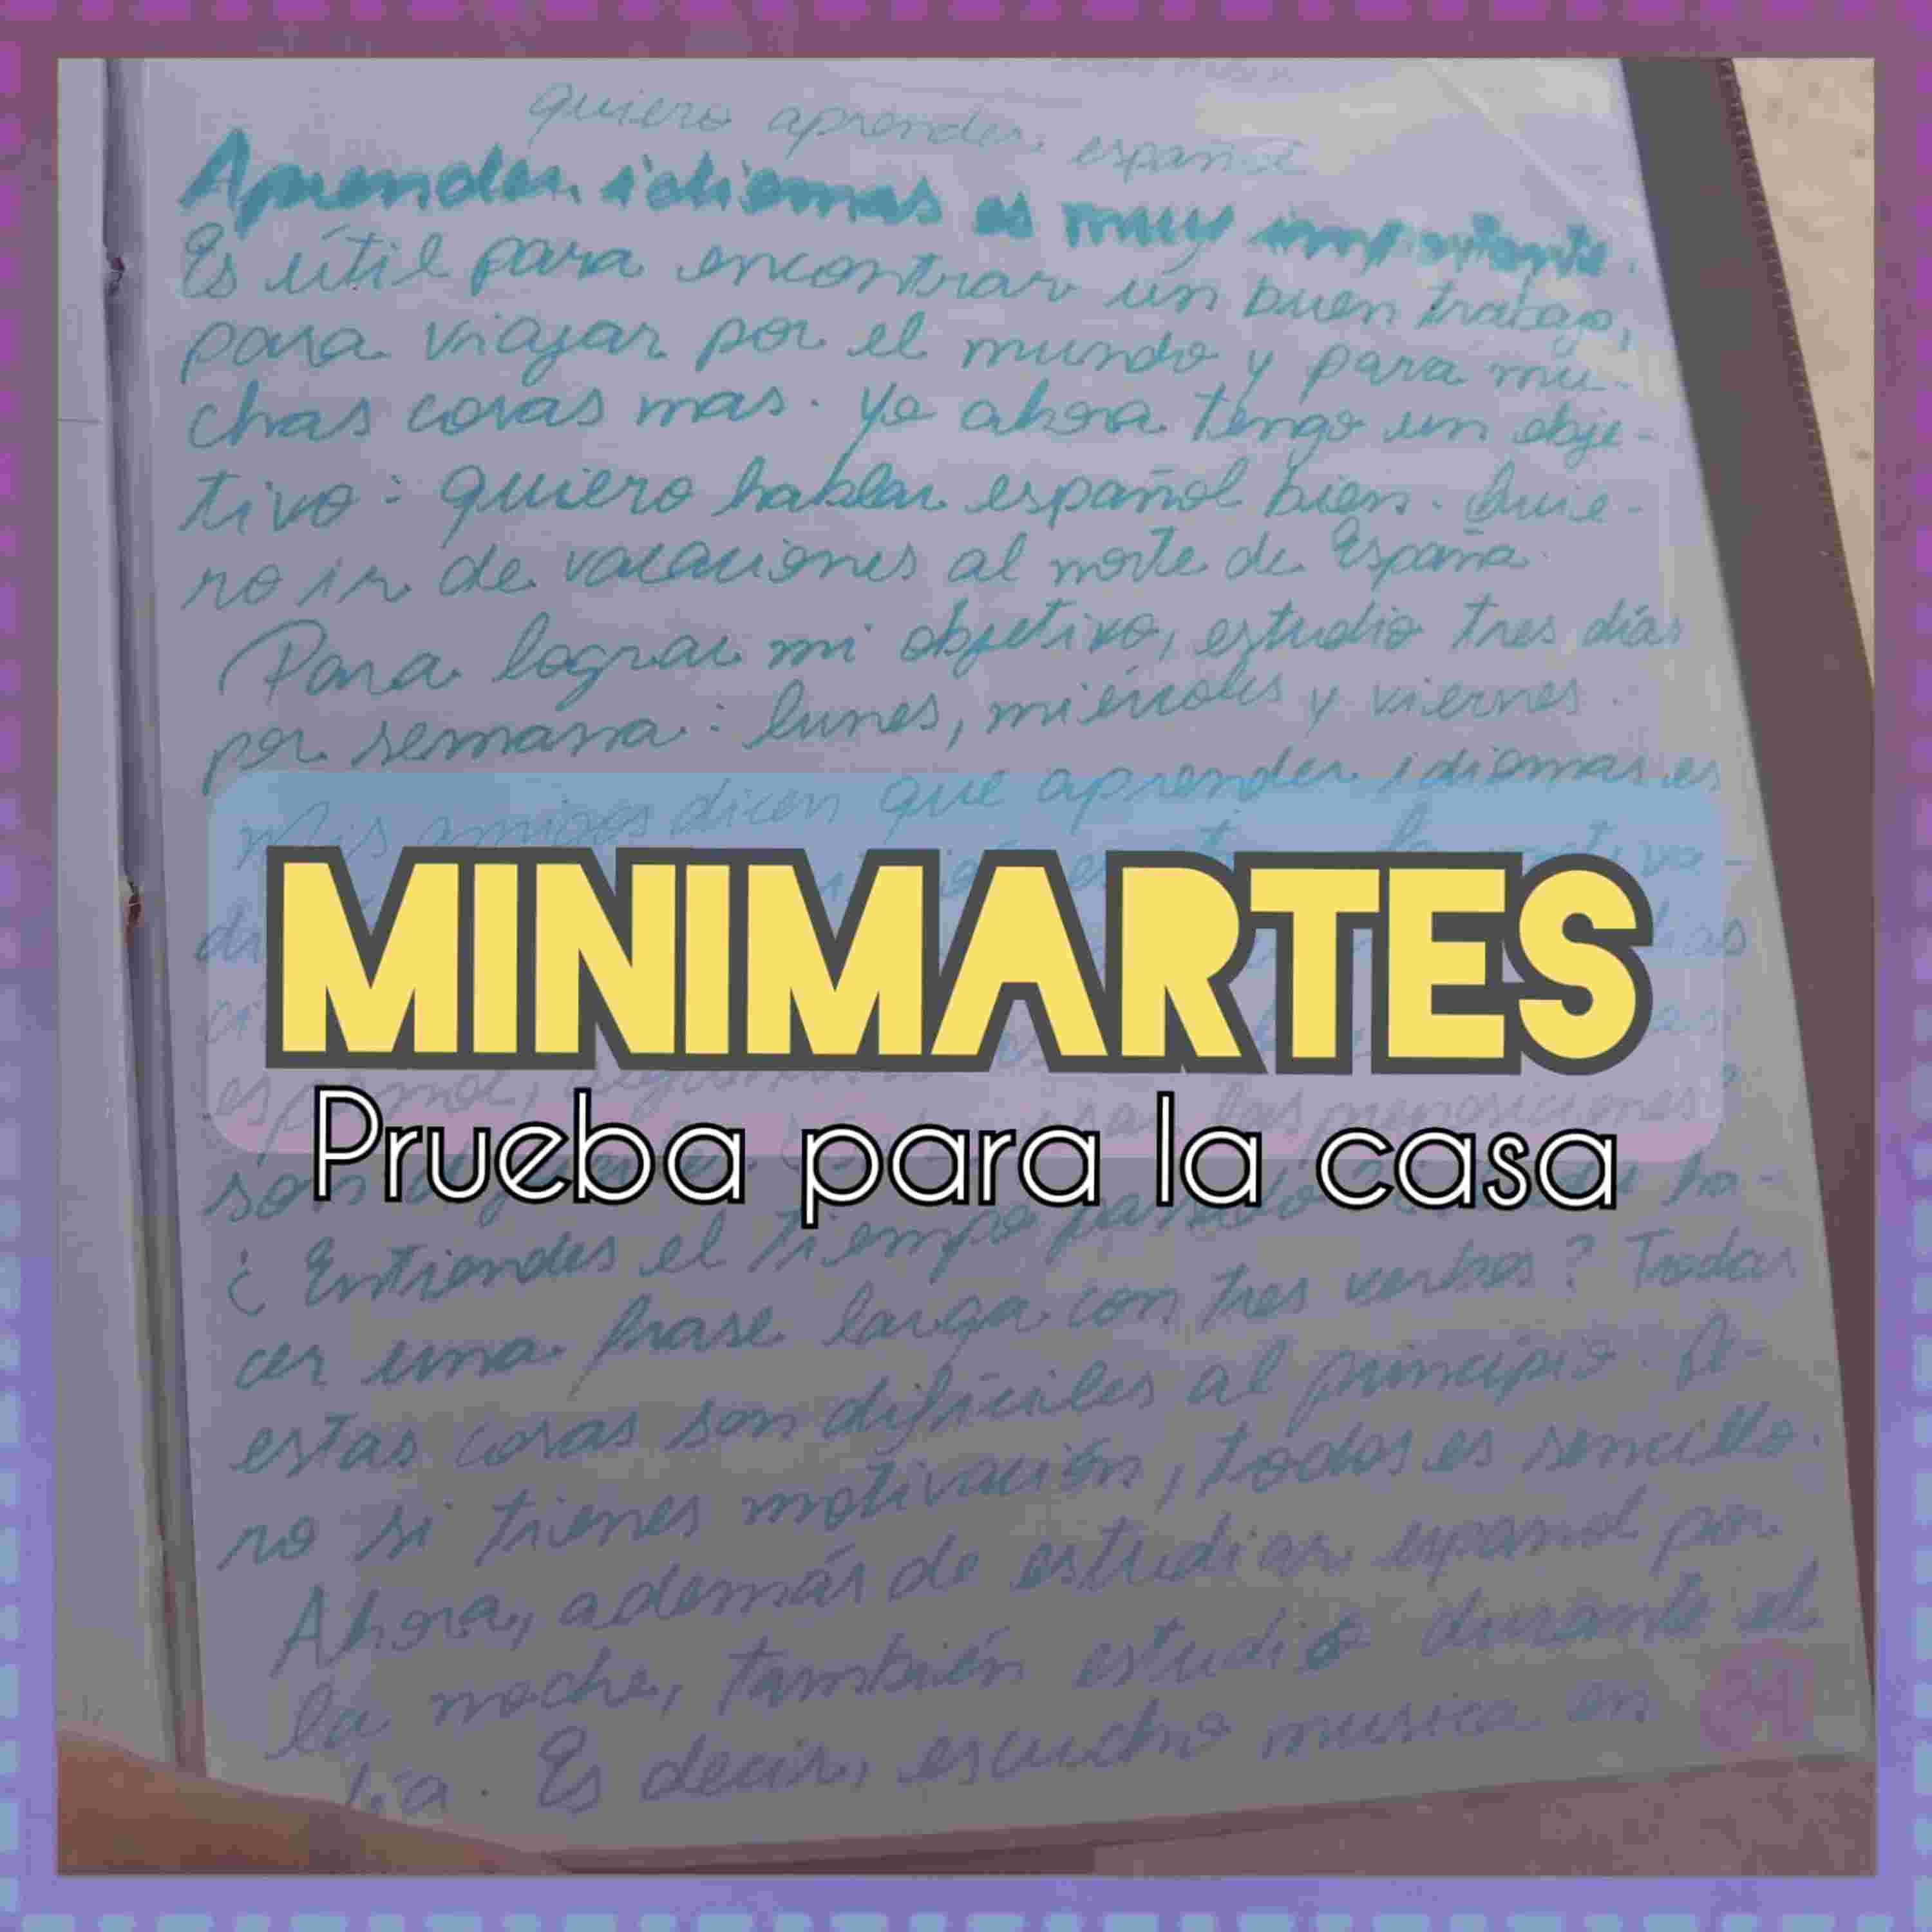 quiero aprender español
Aprender idiomas es muy importante.
Es útil para encontrar un buen trabajo,
para viajar por el mundo y para mu-
chas cosas mas. Yo ahora tengo un obje-
tivo: quiero hablar español bien. Quie-
ro ir de vacaciones al norte de España.
Para lograr mi objetivo, estudio tres días
por semana: lunes, miércoles y viernes.
Mis amigos dicen que aprender idiomas es
MINIMARTES
Prueba para la casa
español, las preposiciones?
son
¿Entiendes el tiempo pasado? ha-
cer una frase larga con tres verbos? Todas
estas cosas son difíciles al principio. Pe-
ro si tienes motivación, todos es sencillo.
Ahora, además de estudiar español por
la noche, también estudio durante el
día. Es decir, escucho musica en